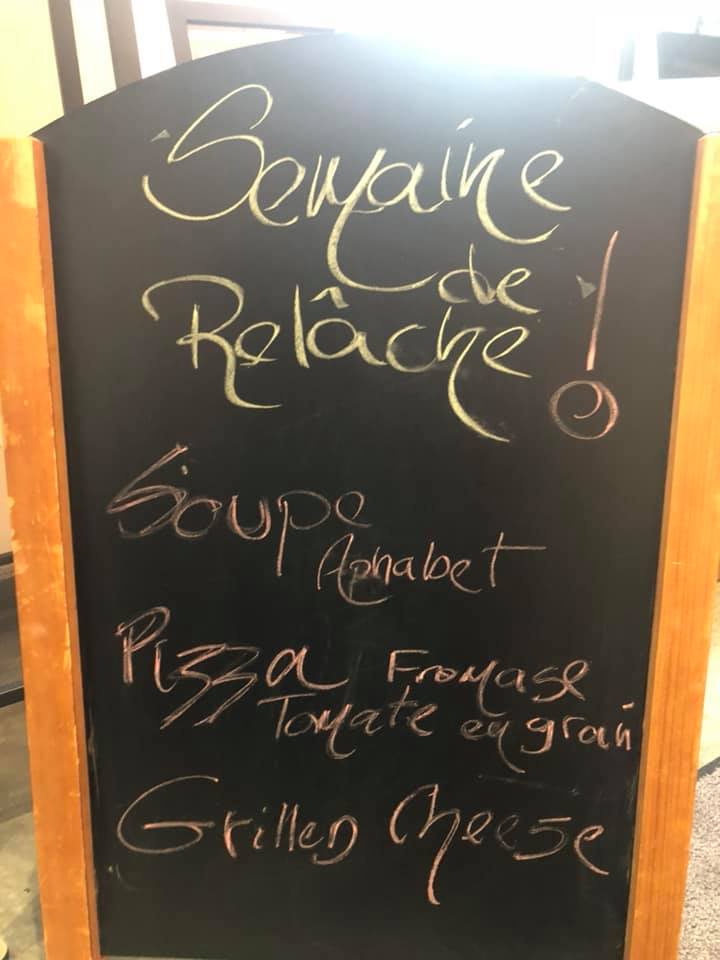 Semaine
de
Relâche!
Soupe
Aphabet
Pizza Fromage
Tomate en grain
Grilled Cheese